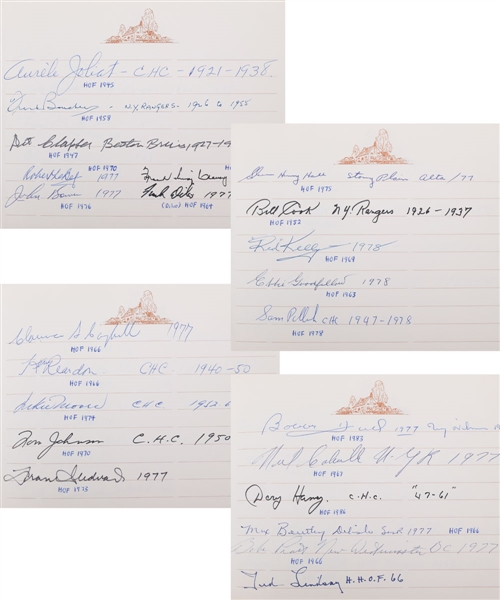 Aurèle Joliat - C.H.C. - 1921-1938.
HOF 1945
Frank Boucher - N.Y. RANGERS - 1926 to 1955
HOF 1958
Dit Clapper Boston Bruins 1927-19
HOF 1947
HOF 1970
1977
HOF
John Bower 1977
1977
HOF 1976
(Dilio) HOF 1964
Glenn Harry Hall Stony Plain Alta /77
HOF 1975
Bill Cook N.Y. Rangers 1926-1937
HOF 1952
Red Kelly - 1978
HOF 1969
Ebbie Goodfellow 1978
HOF 1963
Sam Pollock CHC 1947-1978
HOF 1978
Clarence S. Campbell 1977
HOF 1966
Ken Reardon C.H.C. 1940-50
HOF 1966
Dickie Moore C.H.C.
HOF 1974
Tom Johnson C.H.C. 1950
HOF 1970
1977
HOF 1975
Bower 1977
HOF 1983
Neil Colville N.Y.R. 1977
HOF 1967
Doug Harvey C.H.C. "47-61"
HOF 1986
Max Bentley Delisle Sask 1977 HOF 1966
Babe Pratt New Westminster BC 1977
HOF 1966
Ted Lindsay H.H.O.F. 66